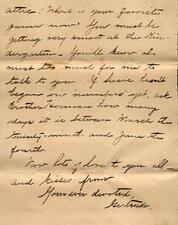 attic. What is your favorite
game now? You must be
getting very smart at the Kin-
dergarten. You'll know al-
most too much for me to
talk to you. If Susie hasn't
begun on numbers yet, ask
Brother Herman how many
days it is between March the
twenty-ninth and June the
fourth.
Now lots of love to you all—
and kisses from
Your own devoted,
Gertrude.